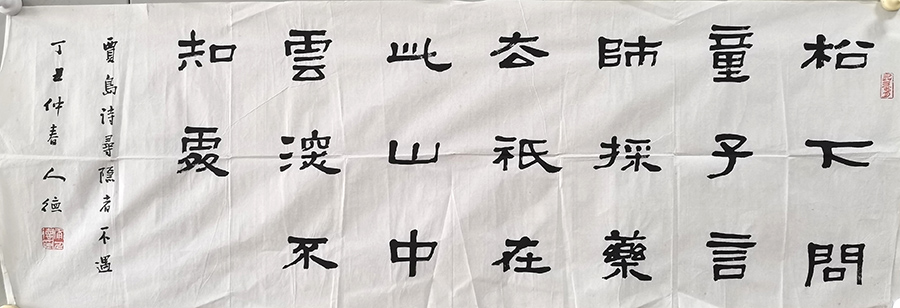 松下問
童子言
師採藥
去祇在
此山中
雲深不
知處
賈島詩尋隱者不遇
丁丑仲春人德